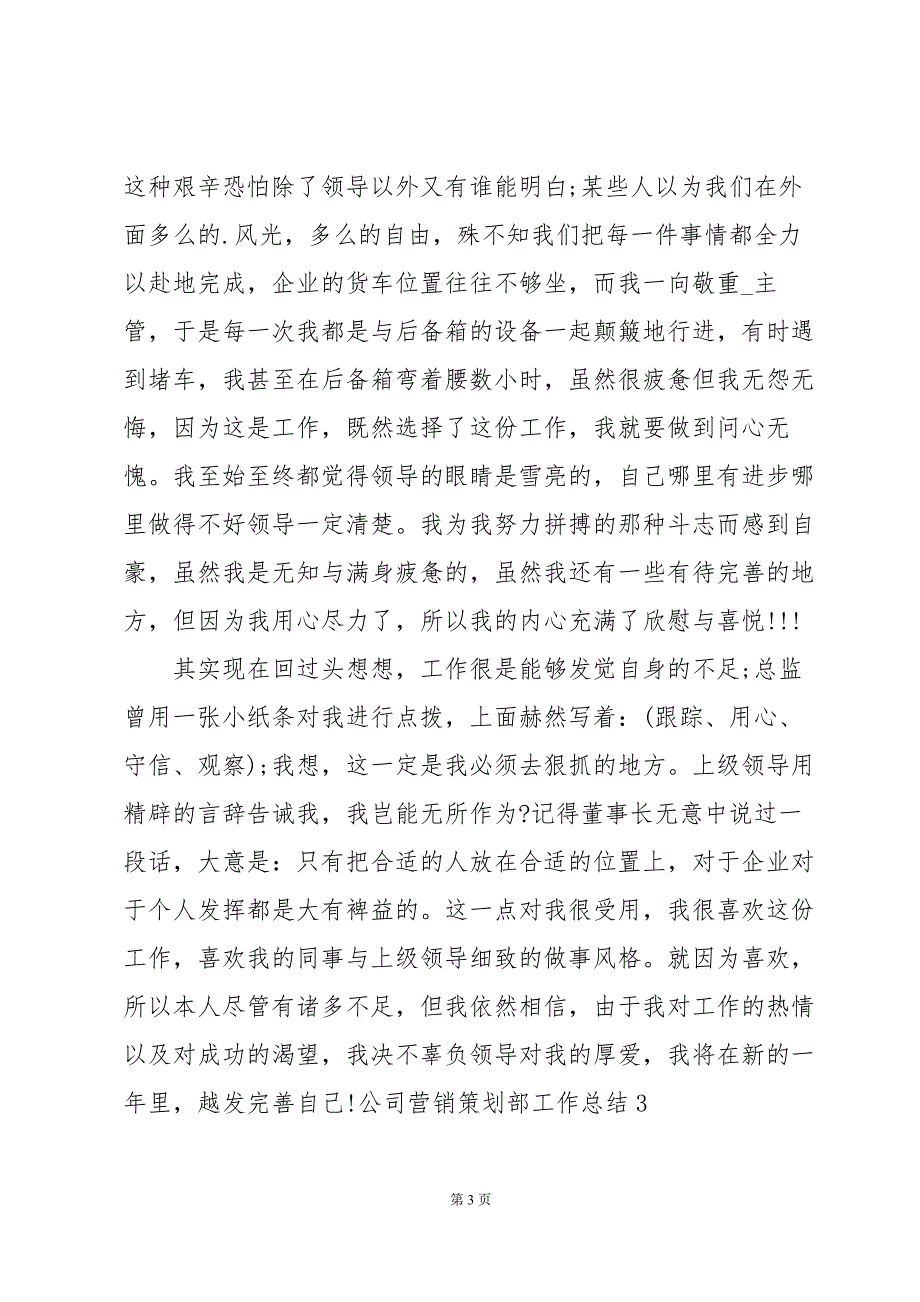 这种艰辛恐怕除了领导以外又有谁能明白;某些人以为我们在外
面多么的.风光，多么的自由，殊不知我们把每一件事情都全力
以赴地完成，企业的货车位置往往不够坐，而我一向敬重_主
管，于是每一次我都是与后备箱的设备一起颠簸地行进，有时遇
到堵车，我甚至在后备箱弯着腰数小时，虽然很疲惫但我无怨无
悔，因为这是工作，既然选择了这份工作，我就要做到问心无
愧。我至始至终都觉得领导的眼睛是雪亮的，自己哪里有进步哪
里做得不好领导一定清楚。我为我努力拼搏的那种斗志而感到自
豪，虽然我是无知与满身疲惫的，虽然我还有一些有待完善的地
方，但因为我用心尽力了，所以我的内心充满了欣慰与喜悦!!!
其实现在回过头想想，工作很是能够发觉自身的不足;总监
曾用一张小纸条对我进行点拨，上面赫然写着：(跟踪、用心、
守信、观察);我想，这一定是我必须去狠抓的地方。上级领导用
精辟的言辞告诫我，我岂能无所作为?记得董事长无意中说过一
段话，大意是：只有把合适的人放在合适的位置上，对于企业对
于个人发挥都是大有裨益的。这一点对我很受用，我很喜欢这份
工作，喜欢我的同事与上级领导细致的做事风格。就因为喜欢，
所以本人尽管有诸多不足，但我依然相信，由于我对工作的热情
以及对成功的渴望，我决不辜负领导对我的厚爱，我将在新的一
年里，越发完善自己!公司营销策划部工作总结 3
第 3 页